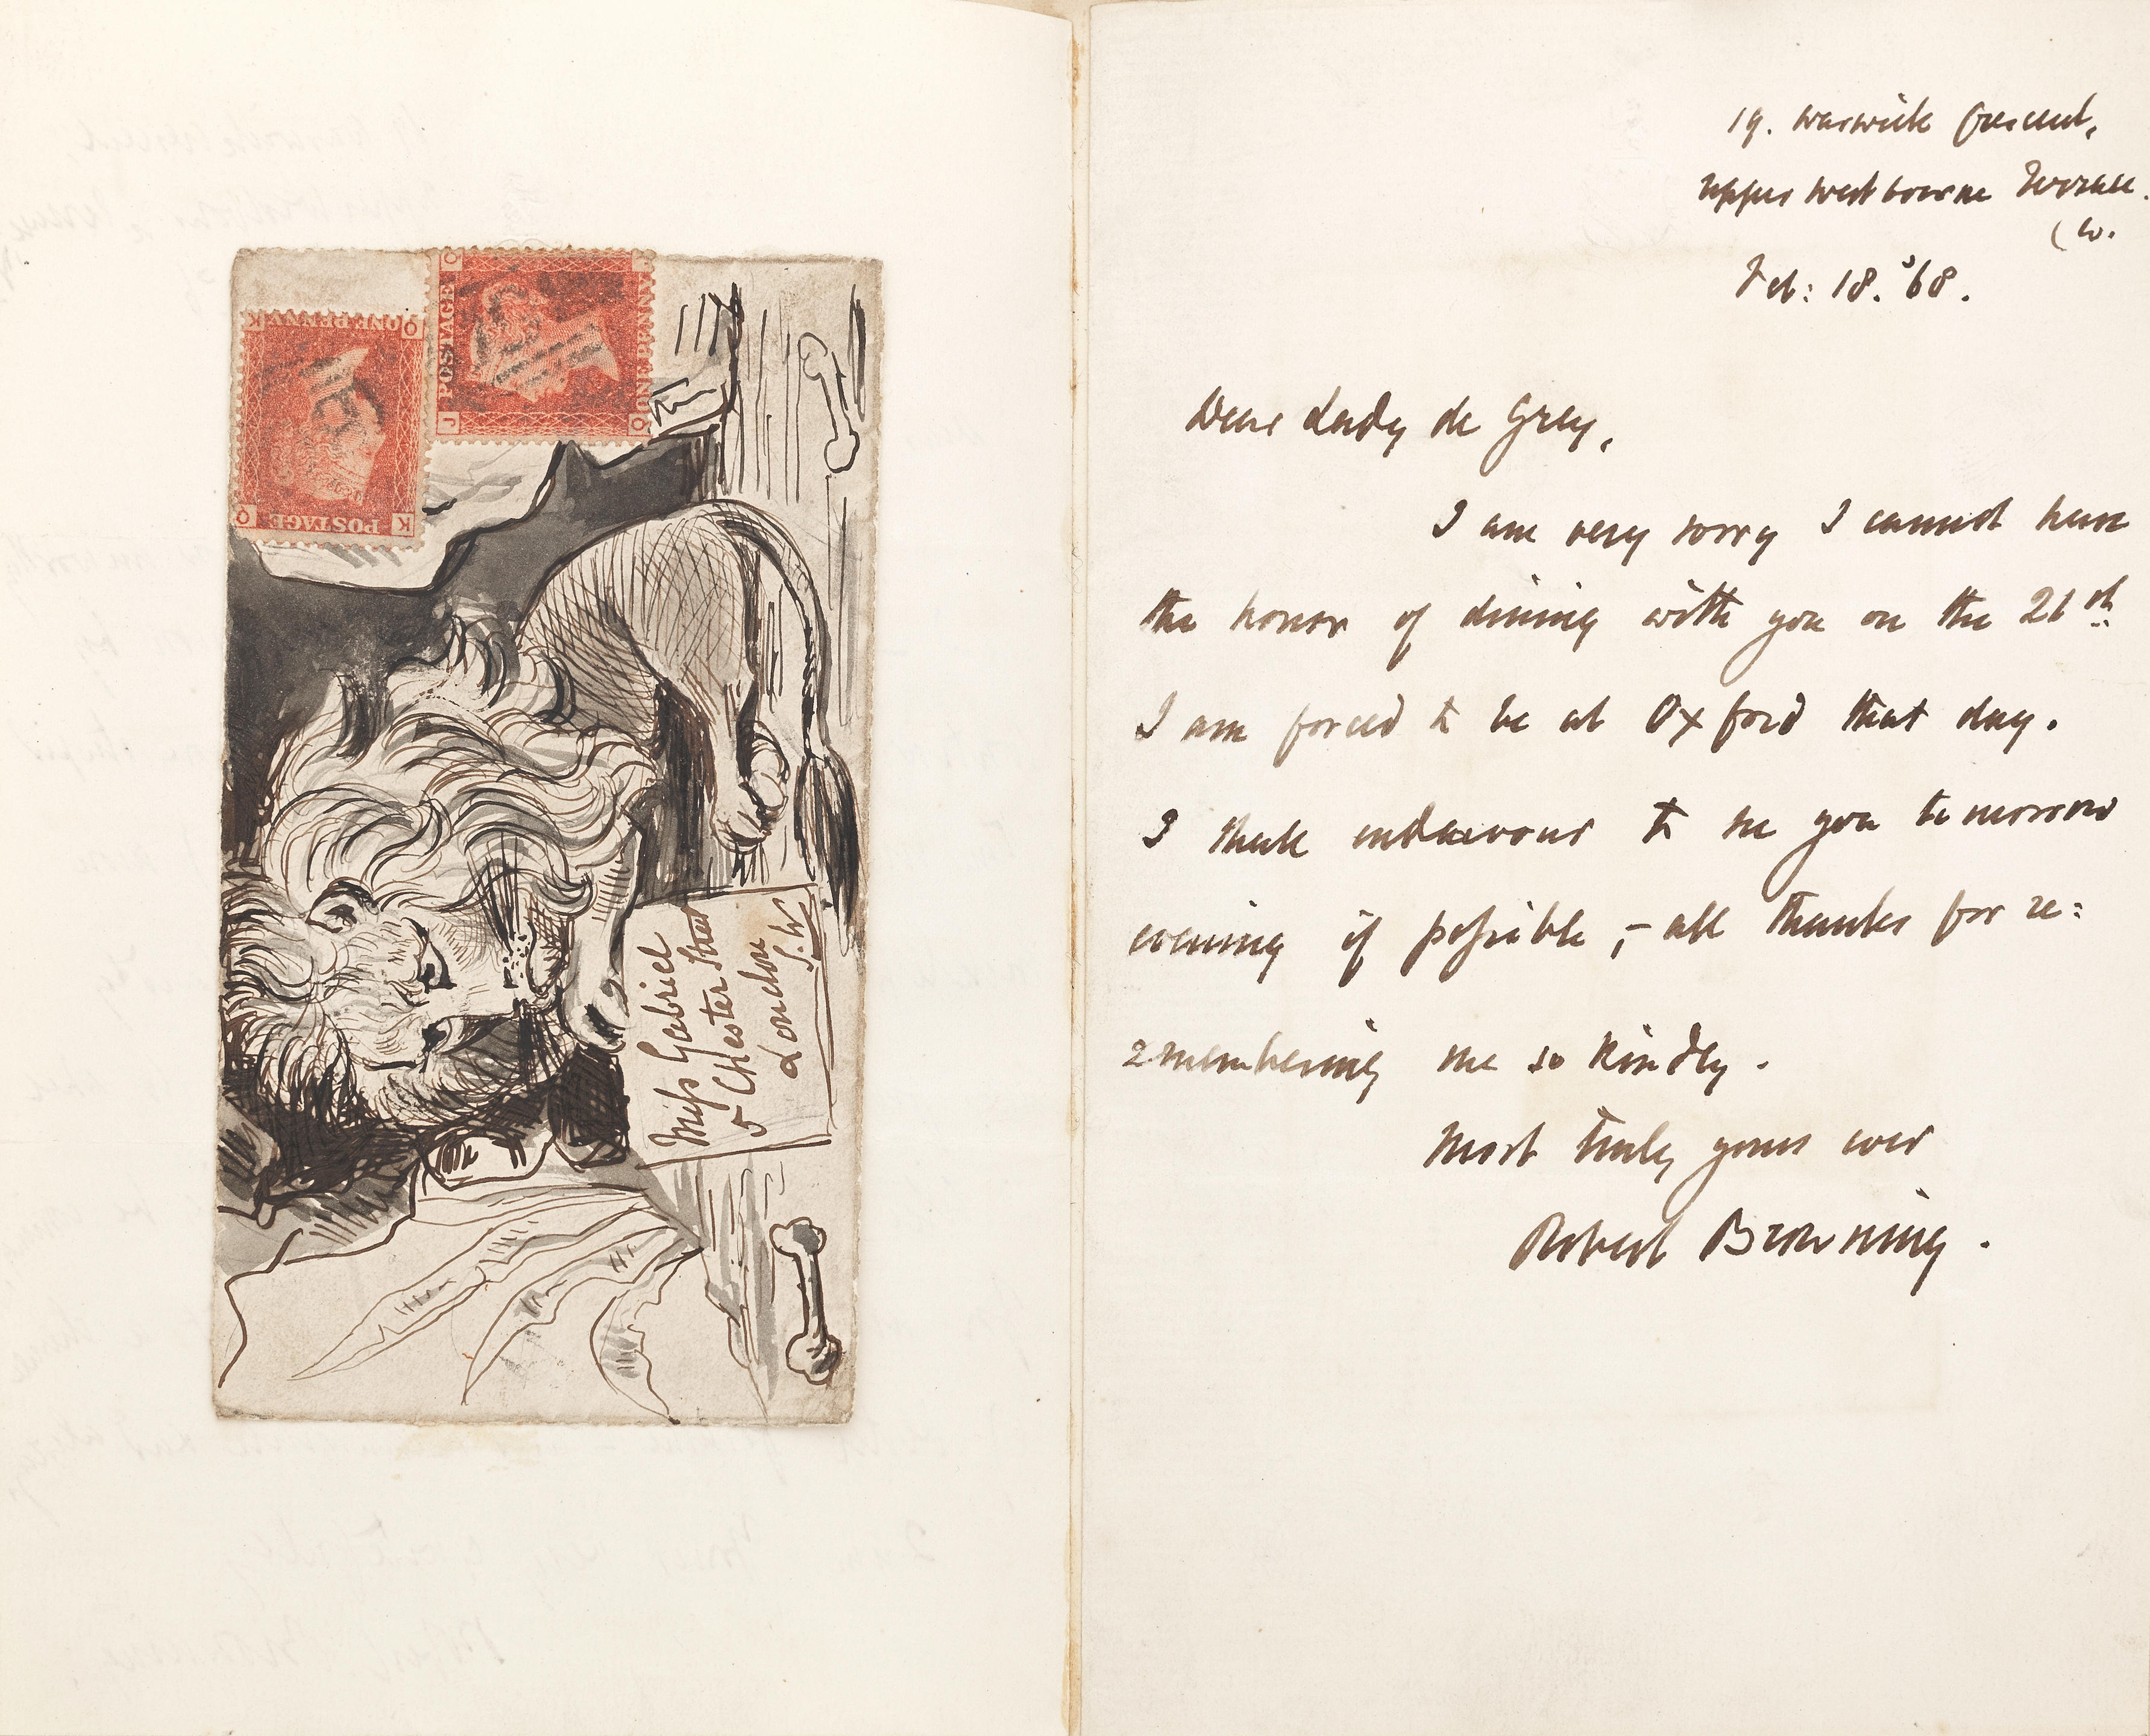 POSTAGE
ONE PENNY
J
Q
POSTAGE
ONE PENNY
K
Q
Miss Gabriel
5 Chester Street
London
S.W
19. Warwick Crescent,
Upper Westbourne Terrace.
(W.
Feb: 18. '68.
Dear Lady de Grey,
I am very sorry I cannot have
the honor of dining with you on the 21st
I am forced to be at Oxford that day.
I shall endeavour to see you to morrow
evening if possible, – all thanks for re:
=membering me so kindly.
Most truly yours ever
Robert Browning.